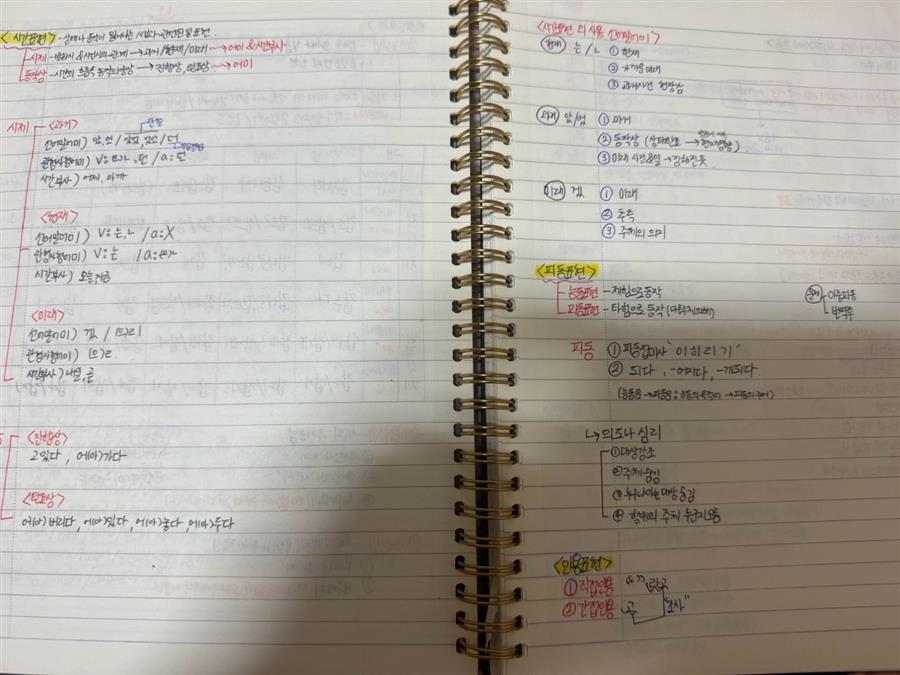 <시간표현> - 상태나 동작이 일어나는 시간과 관련된 말 표현.
시제 - 발화시 & 사건시의 관계 → 과거/현재/미래 ⇝ 어미 & 시간부사
동작상 - 시간의 흐름속 동작의 양상 → 진행상, 완료상 ⇝ 어미
시제
<과거>
선어말어미) 았, 었 / 았었, 었었 / 더
관형사형어미) V: (으)ㄴ, 던 / a: 던
시간부사) 어제, 아까
<현재>
선어말어미) V: 는, ㄴ / a: X
관형사형어미) V: 는 / a: (으)ㄴ
시간부사) 오늘, 지금
<미래>
선어말어미) 겠 / (으)리
관형사형어미) (으)ㄹ
시간부사) 내일, 곧
<진행상>
고 있다, 어(아)가다
<완료상>
어(아)버리다, 어(아)있다, 어(아)놓다, 어(아)두다
<시간표현 의 사용 선어말어미>
현재 는/ㄴ ① 현재
② 가까운 미래
③ 과거사건 현장감
과거 았/었 ① 과거
② 동작상 (상태완료 → 현재영향)
③ 미래 사건&일 → 정해진 듯
미래 겠 ① 미래
② 추측
③ 주체의 의지
<피동표현>
능동표현 - 제힘으로 동작
피동표현 - 타힘으로 동작 (다른주체의해)
문제
이중피동
번역투
피동 ① 피동접미사 "이히리기"
② 되다, -어지다, -게되다
(능동문 → 피동문 : 능동의 목적어 → 피동의 주어)
↳ 의도나 심리
① 대상강조
② 주체 숨김
③ 누구나아는 대상 숨김
④ 행위의 주체 누군지모름
<인용표현>
① 직접인용 " " 라고
② 간접인용 고 "조사"